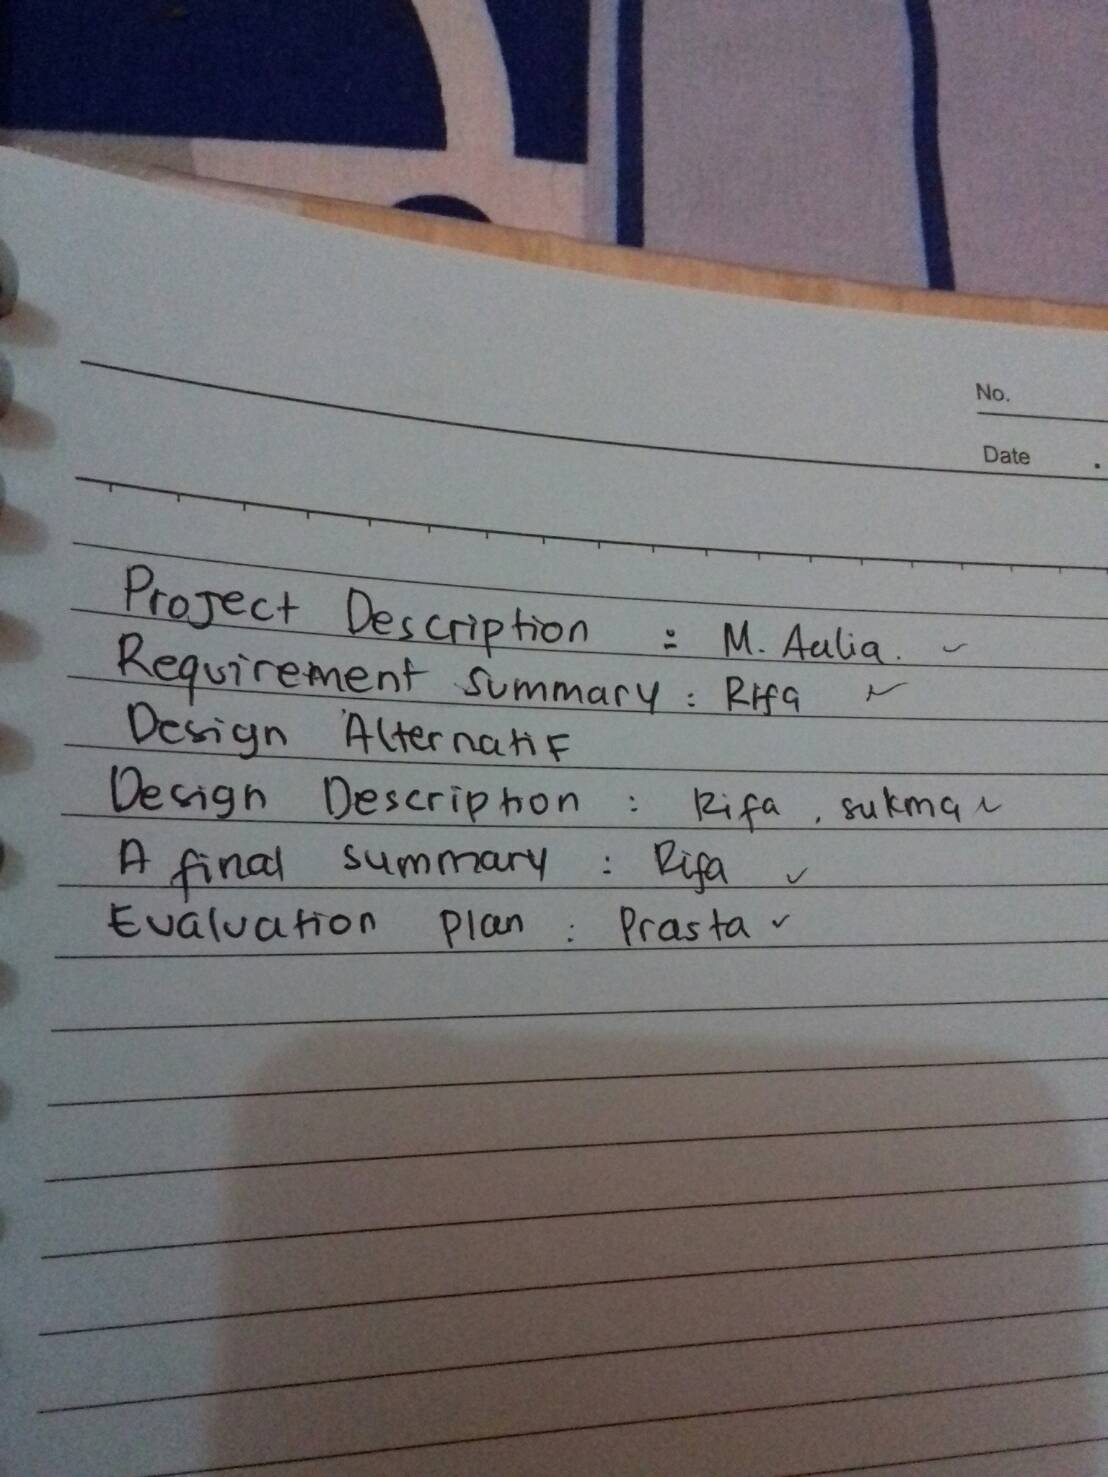 No.
Date .
Project Description : M. Aulia. ✓
Requirement summary : Rifa ✓
Design Alternatif
Design Description : Rifa , sukma ✓
A final summary : Rifa ✓
Evaluation plan : Prasta ✓